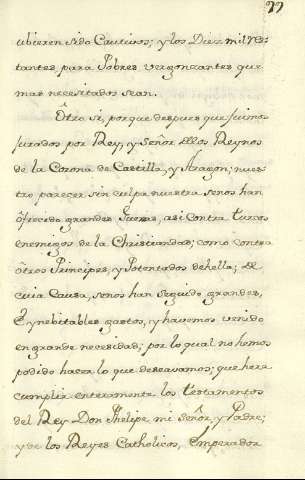 77
ubieren sido Cautivos; y los Diez mil res-
tantes para Pobres vergonzantes que
mas necesitados sean.
Otro si, porque despues que fuimos
jurados por Rey, y Señor dlos Reynos
de la Corona de Castilla, y Aragon; nues-
tro parecer sin culpa nuestra senos han
ofrecido grandes Guerras, asi contra turcos
enemigos de la Christiandad; como contra
òtros Principes, y Potentados de hella; de
cuia Causa, senos han seguido grandes,
È ynebitables gastos, y havemos venido
en grande necesidad; por lo qual no hemos
podido hacer lo que deseavamos; que hera
cumplir enteramente los testamentos
del Rey Don Phelipe mi Señor, y Padre;
y de los Reyes Catholicos, Emperador